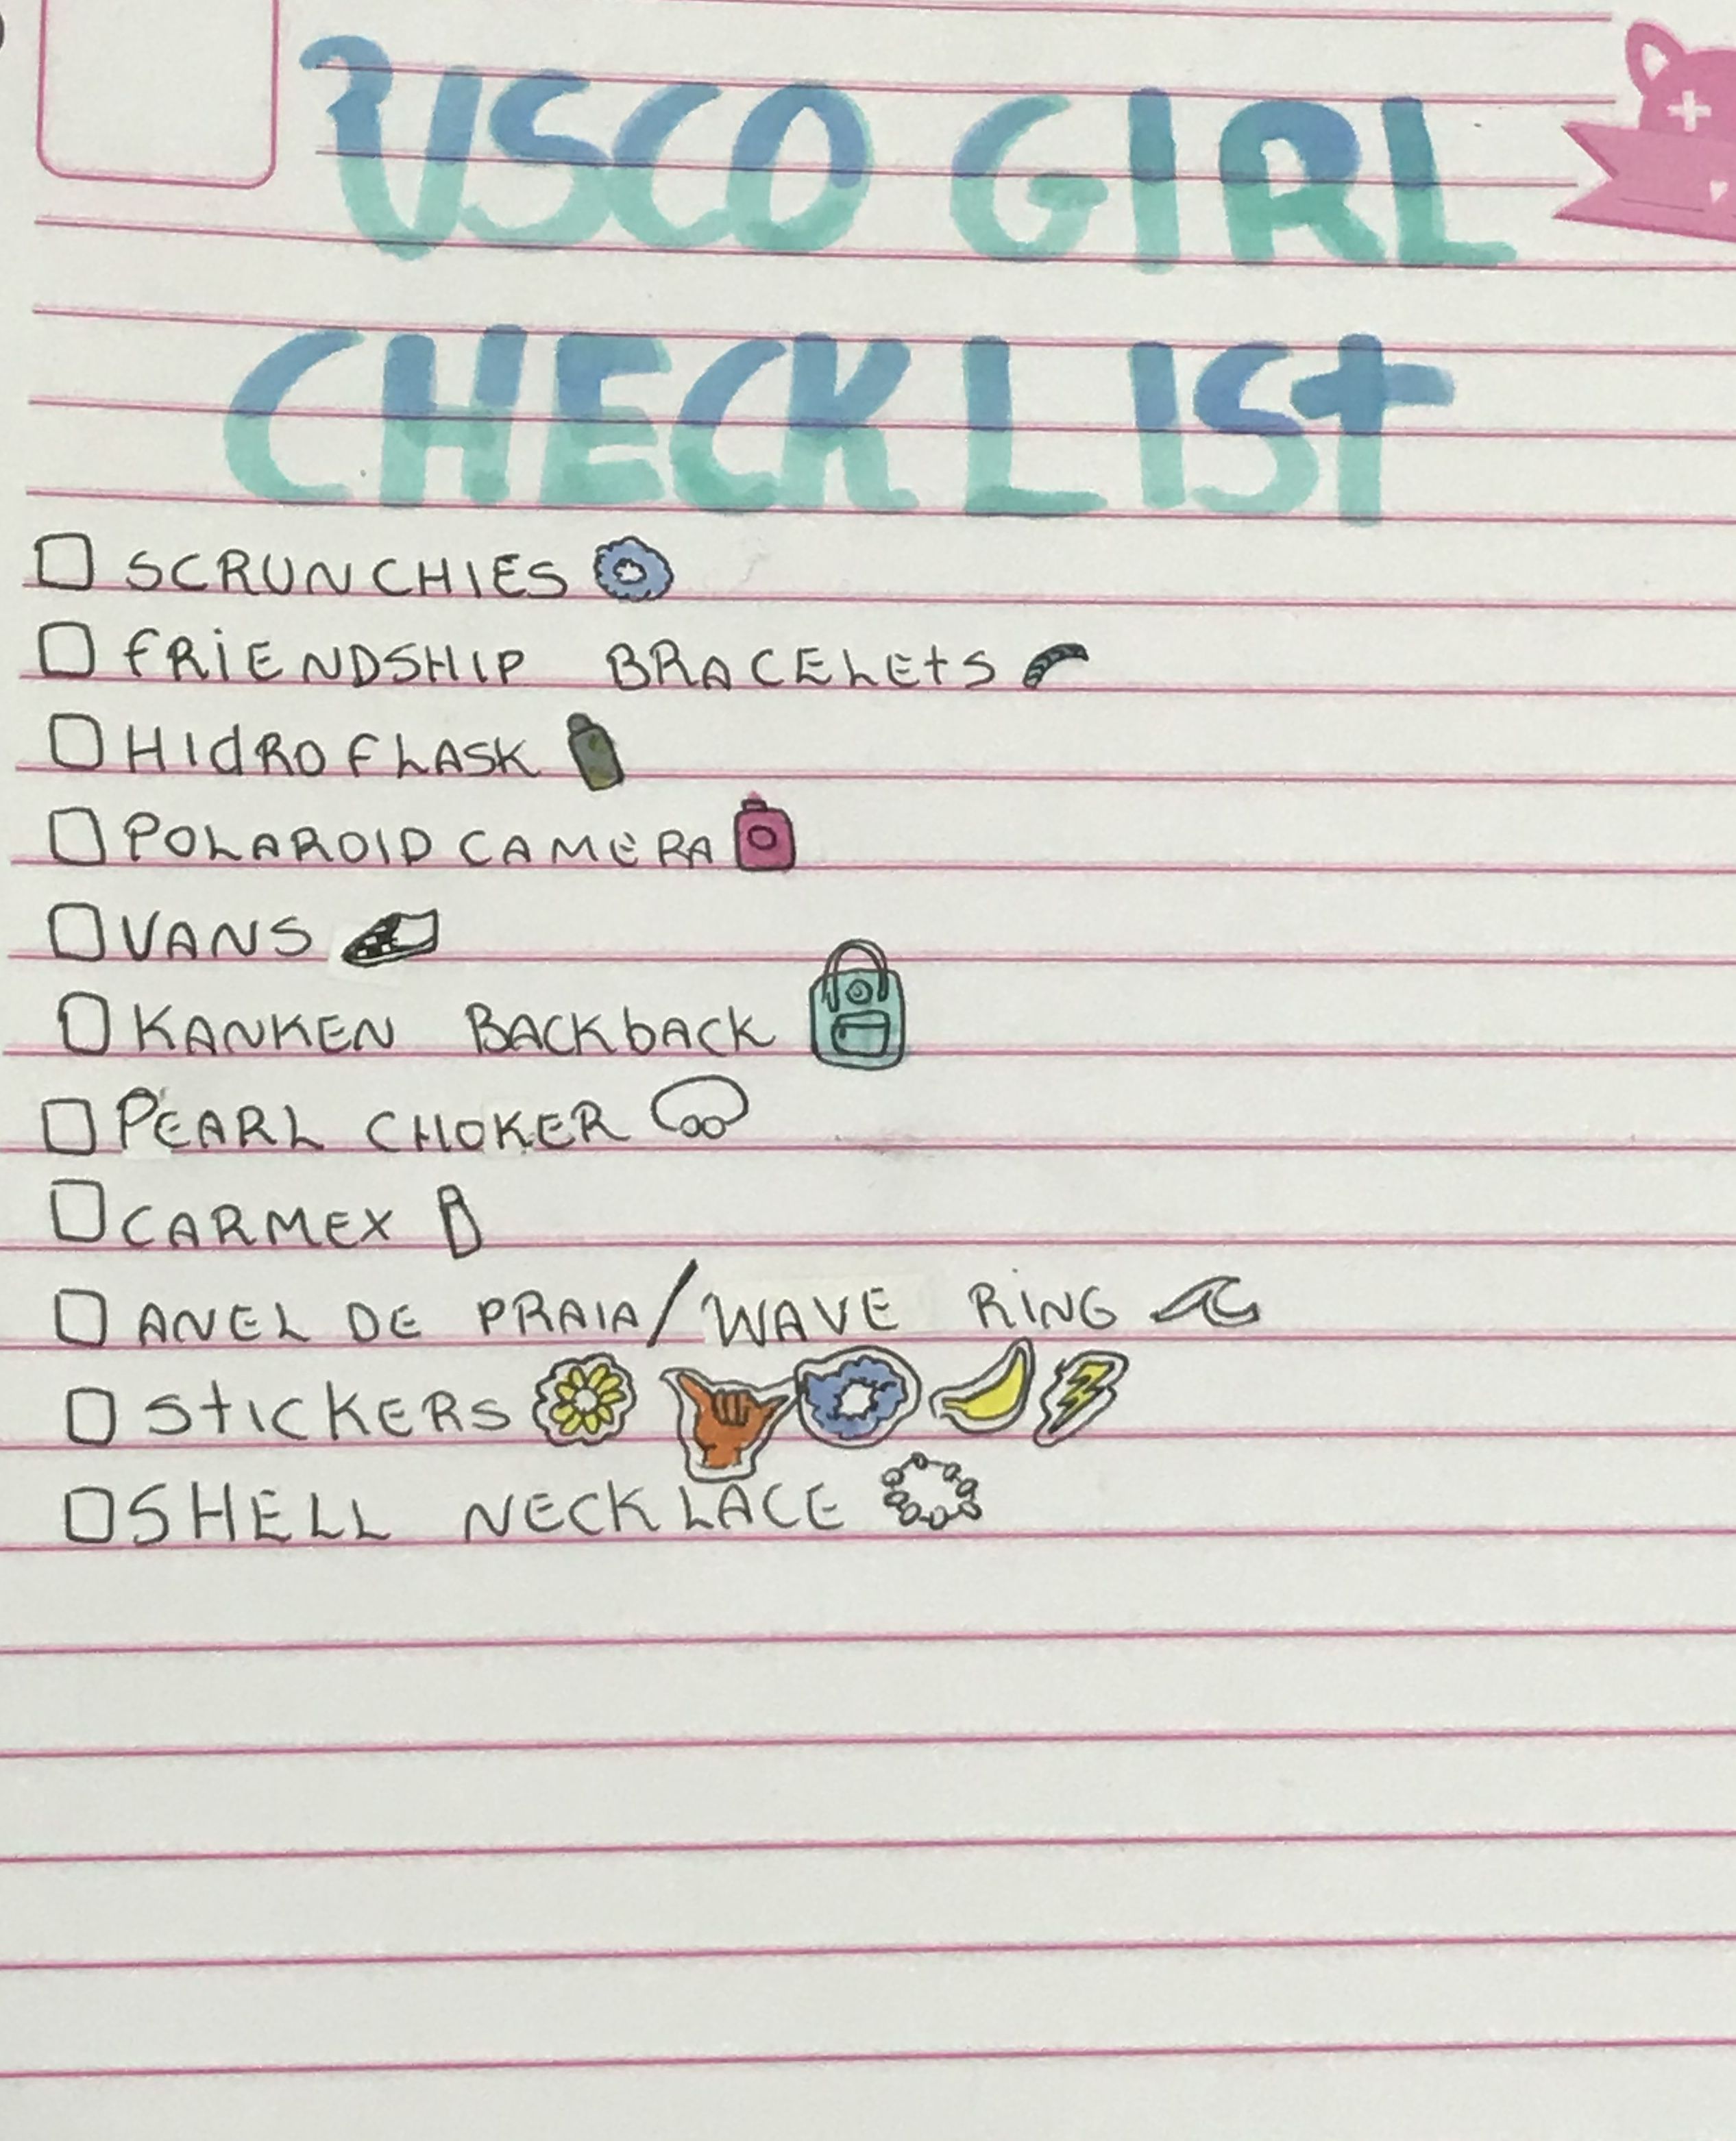 VSCO GIRL
CHECKLIST
SCRUNCHIES
FRIENDSHIP BRACELETS
HIDRO FLASK
POLAROID CAMERA
VANS
KANKEN BACKBACK
PEARL CHOKER
CARMEX
ANEL DE PRAIA/WAVE RING
STICKERS
SHELL NECKLACE